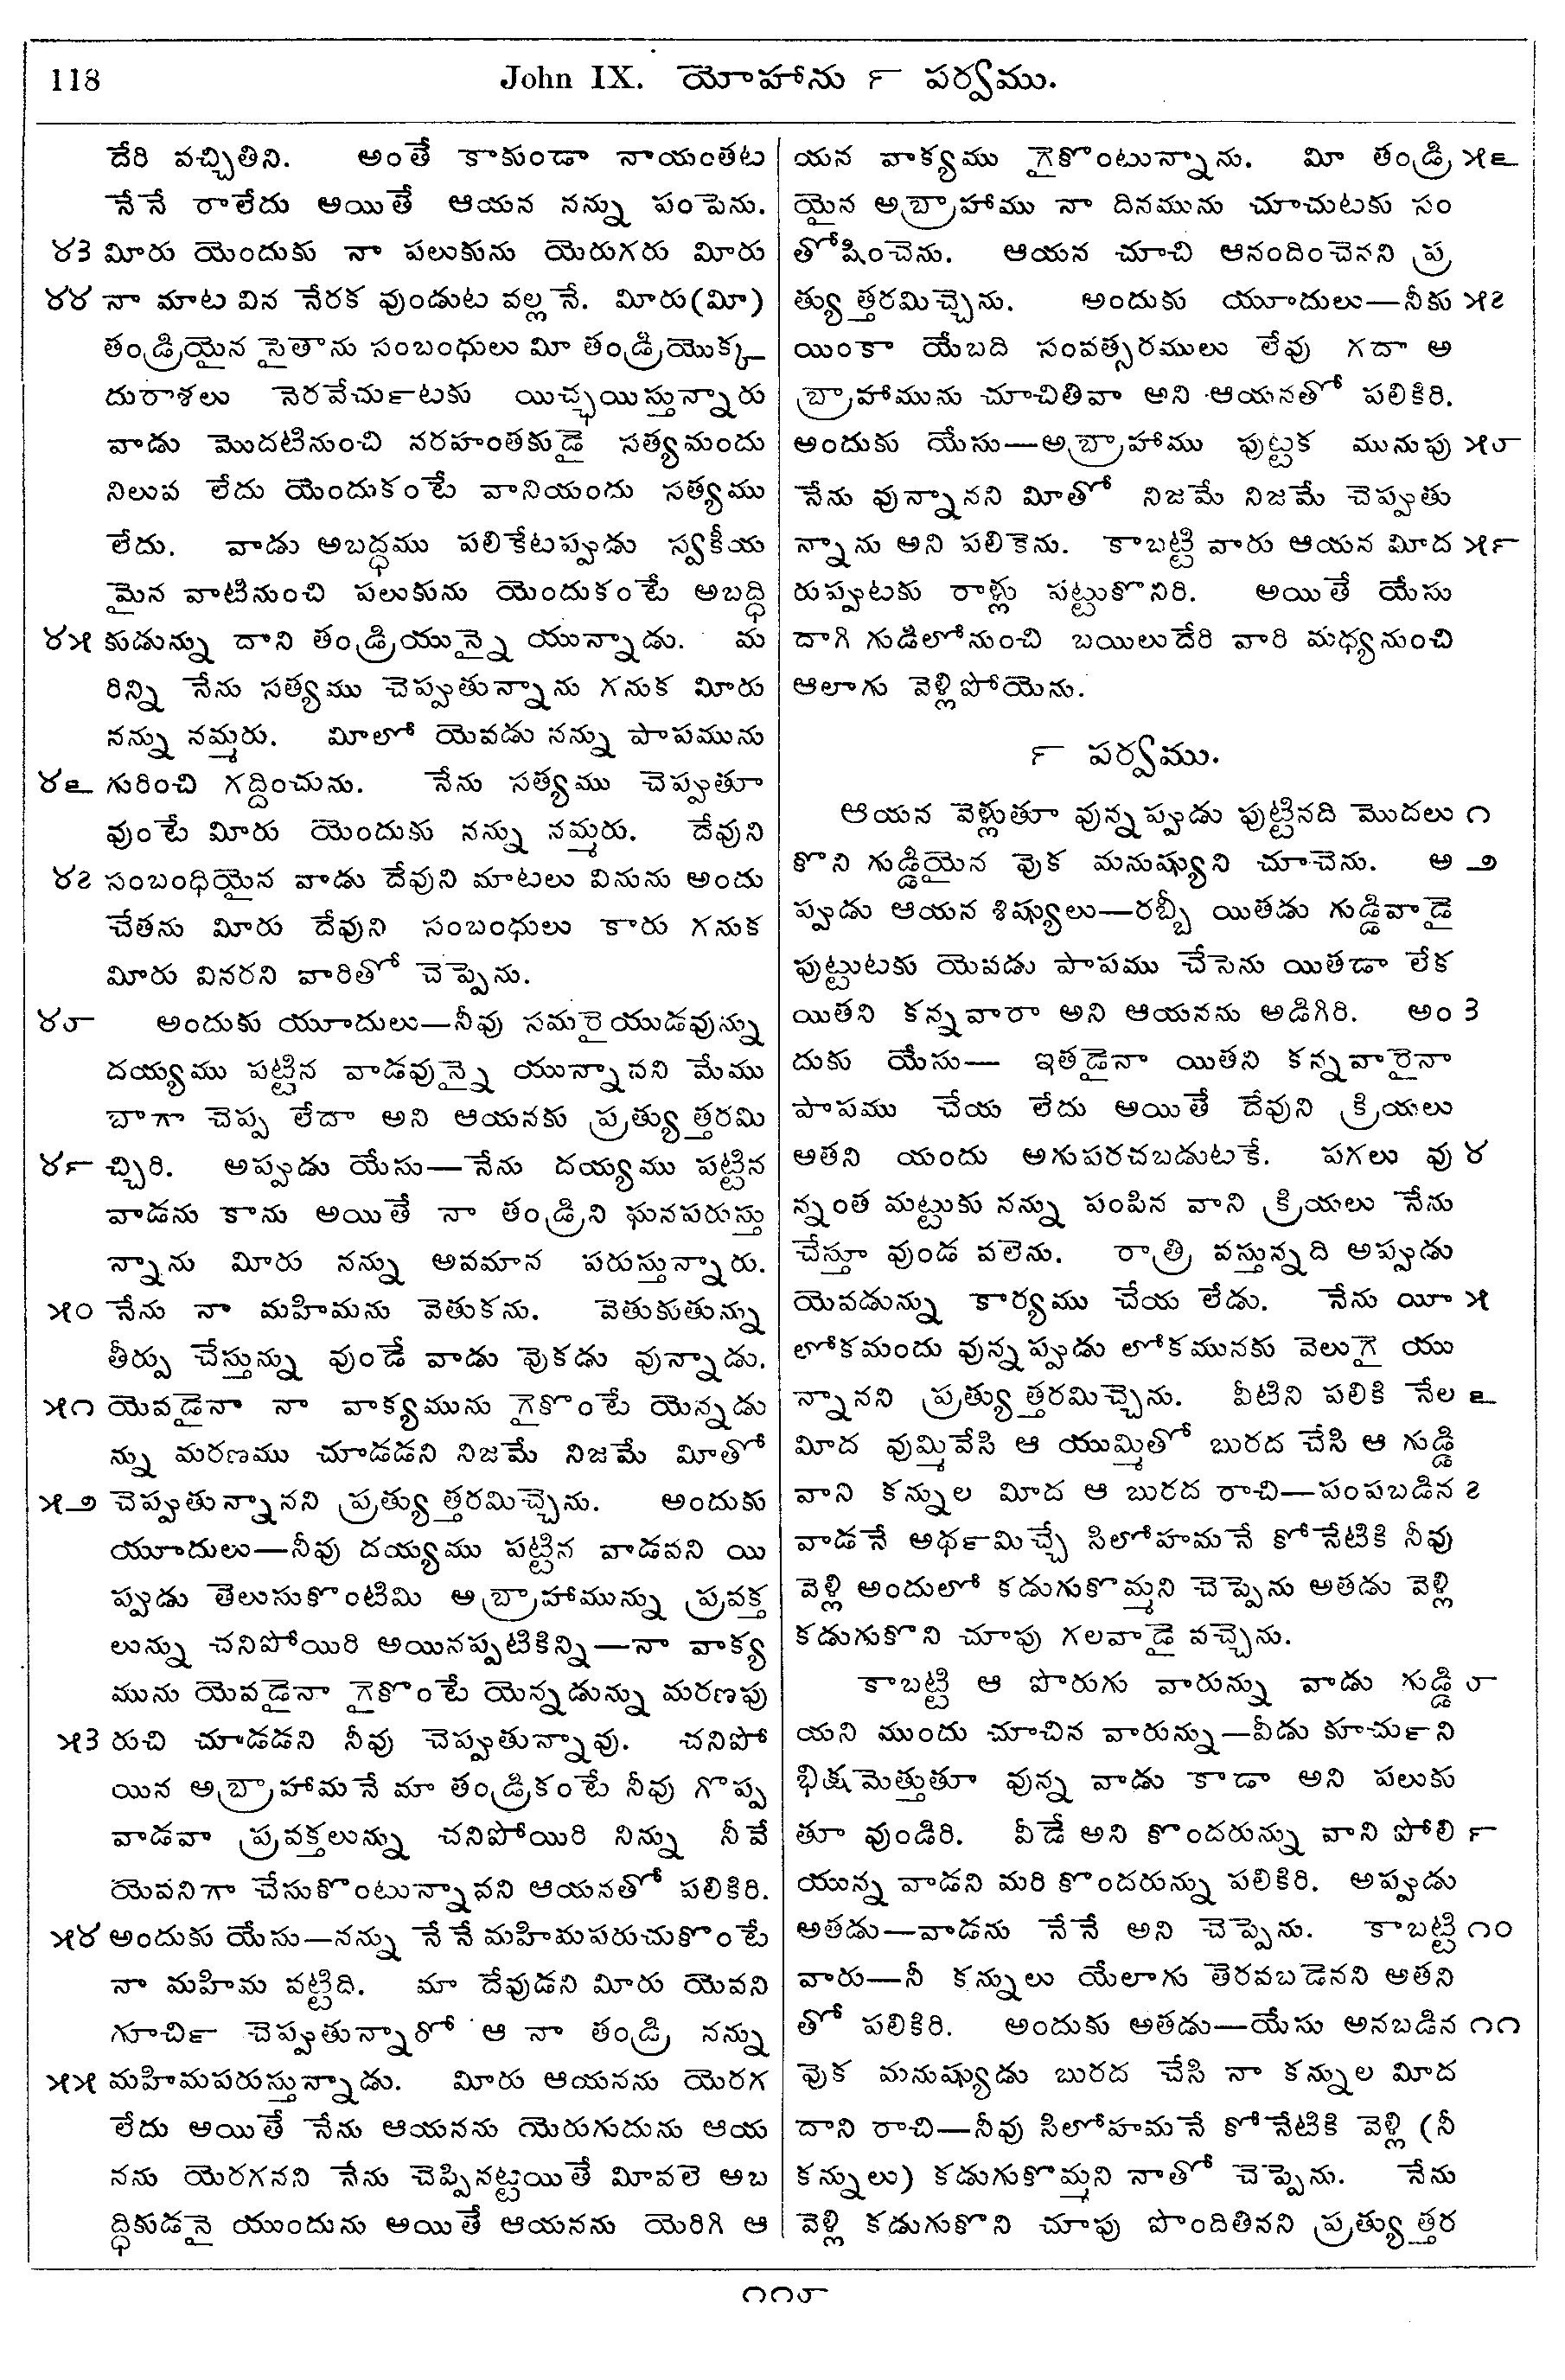 118
John IX. యోహాను ౯ పర్వము.
దేరి వచ్చితిని. అంతే కాకుండా నాయంతట
నేనే రాలేదు అయితే ఆయన నన్ను పంపెను.
౪౩ మీరు యెందుకు నా పలుకును యెరుగరు మీరు
౪౪ నా మాట విన నేరక వుండుట వల్లనే. మీరు(మీ)
తండ్రియైన సైతాను సంబంధులు మీ తండ్రియొక్క
దురాశలు నెరవేచు౯టకు యిచ్ఛయిస్తున్నారు
వాడు మొదటినుంచి నరహంతకుడై సత్యమందు
నిలువ లేదు యెందుకంటే వానియందు సత్యము
లేదు. వాడు అబద్ధము పలికేటప్పుడు స్వకీయ
మైన వాటినుంచి పలుకును యెందుకంటే అబద్ధి
౪౫ కుడున్ను దాని తండ్రియున్నై యున్నాడు. మ
రిన్ని నేను సత్యము చెప్పుతున్నాను గనుక మీరు
నన్ను నమ్మరు. మీలో యెవడు నన్ను పాపమును
౪౬ గురించి గద్దించును. నేను సత్యము చెప్పుతూ
వుంటే మీరు యెందుకు నన్ను నమ్మరు. దేవుని
౪౭ సంబంధియైన వాడు దేవుని మాటలు వినును అందు
చేతను మీరు దేవుని సంబంధులు కారు గనుక
మీరు వినరని వారితో చెప్పెను.
౪౮ అందుకు యూదులు—నీవు సమరైయుడవున్ను
దయ్యము పట్టిన వాడవున్నై యున్నావని మేము
బాగా చెప్ప లేదా అని ఆయనకు ప్రత్యుత్తరమి
౪౯ చ్చిరి. అప్పుడు యేసు—నేను దయ్యము పట్టిన
వాడను కాను అయితే నా తండ్రిని ఘనపరుస్తు
న్నాను మీరు నన్ను అవమాన పరుస్తున్నారు.
౫౦ నేను నా మహిమను వెతుకను. వెతుకుతున్ను
తీర్పు చేస్తున్ను వుండే వాడు వొకడు వున్నాడు.
౫౧ యెవడైనా నా వాక్యమును గైకొంటే యెన్నడు
న్ను మరణము చూడడని నిజమే నిజమే మీతో
౫౨ చెప్పుతున్నానని ప్రత్యుత్తరమిచ్చెను. అందుకు
యూదులు—నీవు దయ్యము పట్టిన వాడవని యి
ప్పుడు తెలుసుకొంటిమి అబ్రాహామున్ను ప్రవక్త
లున్ను చనిపోయిరి అయినప్పటికిన్ని—నా వాక్య
మును యెవడైనా గైకొంటే యెన్నడున్ను మరణపు
౫౩ రుచి చూడడని నీవు చెప్పుతున్నావు. చనిపో
యిన అబ్రాహామనే మా తండ్రికంటే నీవు గొప్ప
వాడవా ప్రవక్తలున్ను చనిపోయిరి నిన్ను నీవే
యెవనిగా చేసుకొంటున్నావని ఆయనతో పలికిరి.
౫౪ అందుకు యేసు—నన్ను నేనే మహిమపరుచుకొంటే
నా మహిమ వట్టిది. మా దేవుడని మీరు యెవని
గూచి౯ చెప్పుతున్నారో ఆ నా తండ్రి నన్ను
౫౫ మహిమపరుస్తున్నాడు. మీరు ఆయనను యెరగ
లేదు అయితే నేను ఆయనను యెరుగుదును ఆయ
నను యెరగనని నేను చెప్పినట్టయితే మీవలె అబ
ద్ధికుడనై యుందును అయితే ఆయనను యెరిగి ఆ
యన వాక్యము గైకొంటున్నాను. మీ తండ్రి ౫౬
యైన అబ్రాహాము నా దినమును చూచుటకు సం
తోషించెను. ఆయన చూచి ఆనందించెనని ప్ర
త్యుత్తరమిచ్చెను. అందుకు యూదులు—నీకు ౫౭
యింకా యేబది సంవత్సరములు లేవు గదా అ
బ్రాహామును చూచితివా అని ఆయనతో పలికిరి.
అందుకు యేసు—అబ్రాహాము పుట్టక మునుపు ౫౮
నేను వున్నానని మీతో నిజమే నిజమే చెప్పుతు
న్నాను అని పలికెను. కాబట్టి వారు ఆయన మీద ౫౯
రుప్పుటకు రాళ్లు పట్టుకొనిరి. అయితే యేసు
దాగి గుడిలోనుంచి బయిలుదేరి వారి మధ్యనుంచి
ఆలాగు వెళ్లిపోయెను.
౯ పర్వము.
ఆయన వెళ్లుతూ వున్నప్పుడు పుట్టినది మొదలు ౧
కొని గుడ్డియైన వొక మనుష్యుని చూచెను. అ ౨
ప్పుడు ఆయన శిష్యులు—రబ్బీ యితడు గుడ్డివాడై
పుట్టుటకు యెవడు పాపము చేసెను యితడా లేక
యితని కన్నవారా అని ఆయనను అడిగిరి. అం ౩
దుకు యేసు— ఇతడైనా యితని కన్నవారైనా
పాపము చేయ లేదు అయితే దేవుని క్రియలు
అతని యందు అగుపరచబడుటకే. పగలు వు ౪
న్నంత మట్టుకు నన్ను పంపిన వాని క్రియలు నేను
చేస్తూ వుండ వలెను. రాత్రి వస్తున్నది అప్పుడు
యెవడున్ను కార్యము చేయ లేడు. నేను యీ ౫
లోకమందు వున్నప్పుడు లోకమునకు వెలుగై యు
న్నానని ప్రత్యుత్తరమిచ్చెను. వీటిని పలికి నేల ౬
మీద వుమ్మివేసి ఆ యుమ్మితో బురద చేసి ఆ గుడ్డి
వాని కన్నుల మీద ఆ బురద రాచి—పంపబడిన ౭
వాడనే అథ౯మిచ్చే సిలోహమనే కోనేటికి నీవు
వెళ్లి అందులో కడుగుకొమ్మని చెప్పెను అతడు వెళ్లి
కడుగుకొని చూపు గలవాడై వచ్చెను.
కాబట్టి ఆ పొరుగు వారున్ను వాడు గుడ్డి ౮
యని ముందు చూచిన వారున్ను—వీడు కూచు౯ని
భిక్షమెత్తుతూ వున్న వాడు కాడా అని పలుకు
తూ వుండిరి. వీడే అని కొందరున్ను వాని పోలి ౯
యున్న వాడని మరి కొందరున్ను పలికిరి. అప్పుడు
అతడు—వాడను నేనే అని చెప్పెను. కాబట్టి ౧౦
వారు—నీ కన్నులు యేలాగు తెరవబడెనని అతని
తో పలికిరి. అందుకు అతడు—యేసు అనబడిన ౧౧
వొక మనుష్యుడు బురద చేసి నా కన్నుల మీద
దాని రాచి—నీవు సిలోహమనే కోనేటికి వెళ్లి (నీ
కన్నులు) కడుగుకొమ్మని నాతో చెప్పెను. నేను
వెళ్లి కడుగుకొని చూపు పొందితినని ప్రత్యుత్తర
౧౧౮